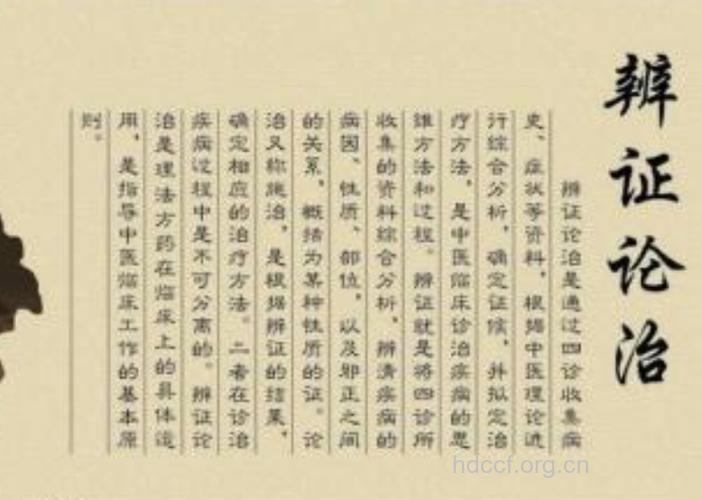 辨证论治
辨证论治是通过四诊收集病
史、症状等资料，根据中医理论进
行综合分析，确定证候，并拟定治
疗方法，是中医临床诊治疾病的思
维方法和过程。辨证就是将四诊所
收集的资料综合分析，辨清疾病的
病因、性质、部位，以及邪正之间
的关系，概括为某种性质的证。论
治又称施治，是根据辨证的结果，
确定相应的治疗方法。二者在诊治
疾病过程中是不可分离的。辨证论
治是理法方药在临床上的具体运
用，是指导中医临床工作的基本原
则。
hdccf.org.cn